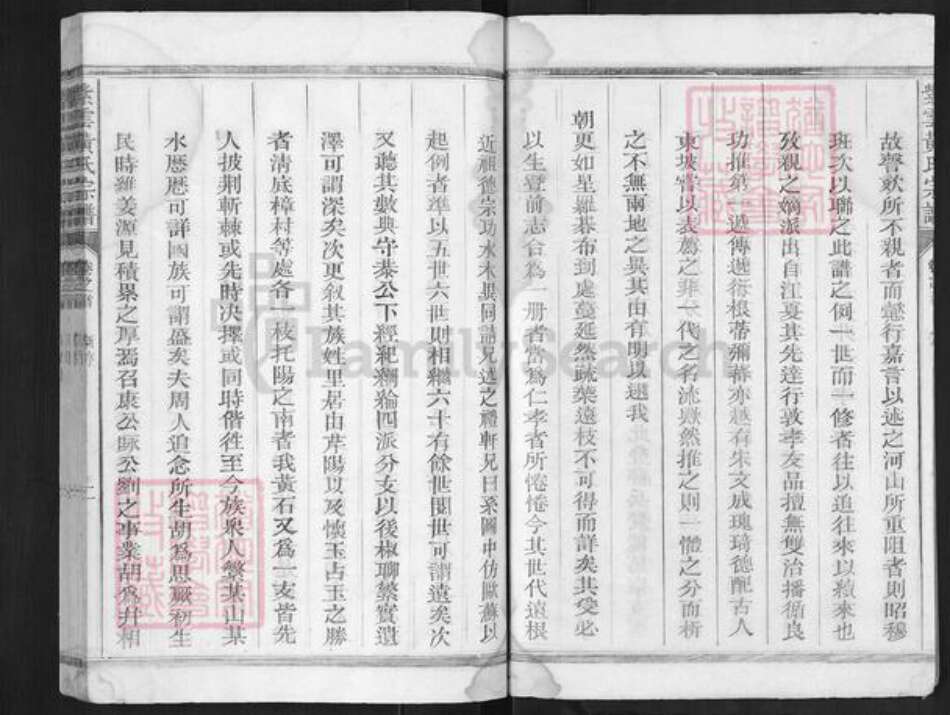 故聲欬所不親者而懿行嘉言以述之河山所重阻者則昭穆
班次以聯之此譜之例一世而一修者往以追往來以續來也
攷親之嫡派出自江夏其先達行敦孝友品擅無雙治播循良
功推第一遞傳遞衍根蒂彌蕃亦越有宋文成瑰琦德配古人
東坡嘗以表薦之第一代之名流欿然推之則一體之分而析
之不無兩地之異其由有明以還我
朝更如星羅碁布到處蔓延然疏葉遠枝不可得而詳矣其受必
以生登前志合為一册者當為仁孝者所惓惓今其世代遠根
近祖德宗功水木異同譜兄述之禮軒兄曰系圖中仿歐蘇以
起例者準以五世六世則相繼六十有餘世閱世可謂遠矣次
又聽其數與守恭公下經紀綱綸四派分支以後椒聊繁實遺
澤可謂深矣次更叙其族姓里居由芹陽以及懷玉占玉之勝
者清底樟村等處各一枝托陽之南者我黃石又為一支皆先
人披荆斬棘或先時决擇或同時偕徃至今族衆人繁某山某
水歷歷可詳國族可謂盛矣夫周人追念所生胡為思厥初生
民時維姜源見積累之厚焉召康公咏公劉之事業胡為幷相
紫雲黃氏宗譜
紫雲黃氏宗譜
FamilySearch